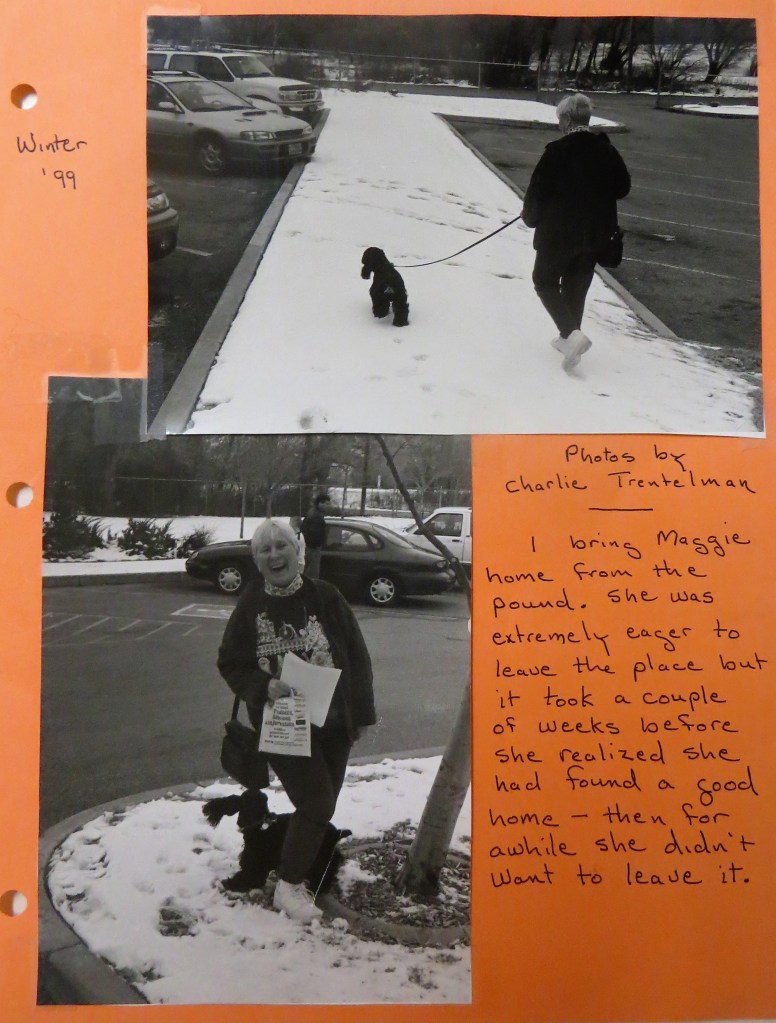 Winter
'99
Photos by
Charlie Trentelman
I bring Maggie
home from the
pound. She was
extremely eager to
leave the place but
it took a couple
of weeks before
she realized she
had found a good
home – then for
awhile she didn't
want to leave it.